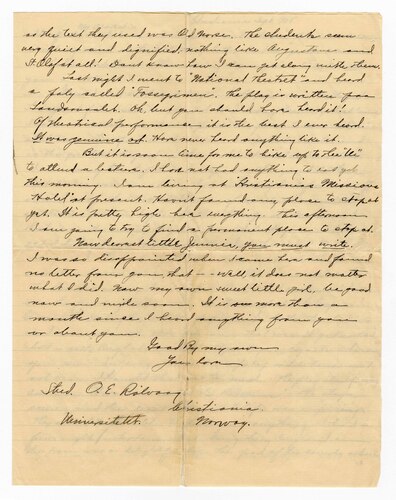 as the text they used was Old Norse. The students seem
very quiet and dignified, nothing like Augustana and
St. Olaf at all! Don't know how I can get along with them.
Last night I went to "National Theatret" and heard
a play called "Fossegrimen". The play is written paa
Landsmaalet. Oh, but you should have heard it!
Of theatrical performances it is the best I ever heard.
It was genuine art. Have never heard anything like it.
But it is soon time for me to hike up to the "U"
to attend a lecture. I have not had anything to eat yet
this morning. I am living at Kristiania Missions
Hotel at present. Havn't found any place to stop at
yet. It is pretty high here everything. This afternoon
I am going to try to find a permanent place to stop at.
Now dearest little Jennie, you must write.
I was so disappointed when I came here and found
no letter from you, that — well, it does not matter
what I did. Now my own sweet little girl, be good
now and write soon. It is more than a
month since I heard anything from you
or about you.
Good By my own
Your own
Stud. O. E. Rölvaag
Christiania
Universitetet. Norway.